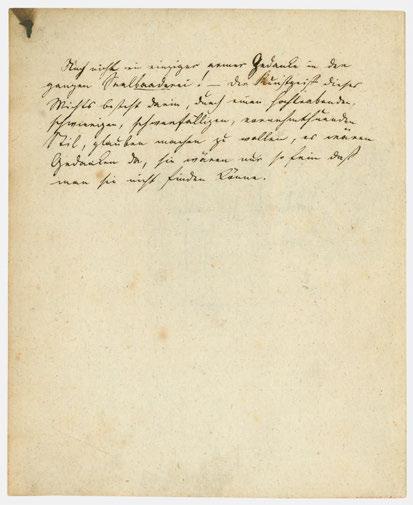 Noch nicht ein einziger armer Gedanke in der
ganzen Saalbaaderei! — Der Kunstgriff dieses
Wichts besteht darin, durch einen hochtrabenden,
schwierigen, schwerfälligen, vornehmthuenden
Stil, glauben machen zu wollen, es wären
Gedanken da, sie wären nur so fein daß
man sie nicht finden könne.